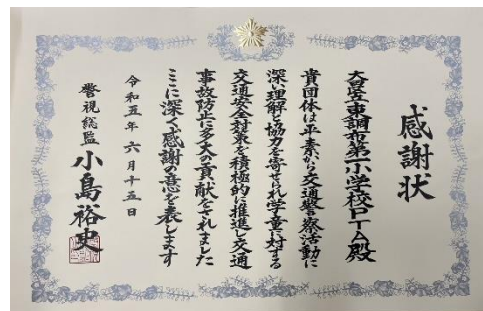 感謝状
大田区立東調布第一小学校PTA殿
貴団体は平素から交通警察活動に
深い理解と協力を寄せられ学童に対する
交通安全対策を積極的に推進し交通
事故防止に多大の貢献をされました
ここに深く感謝の意を表します
令和五年六月十五日
警視総監 小島裕史